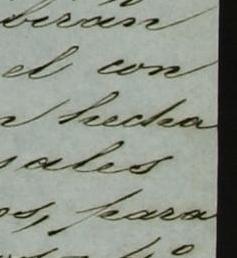 birán
el con
n hecha
sales
os, para